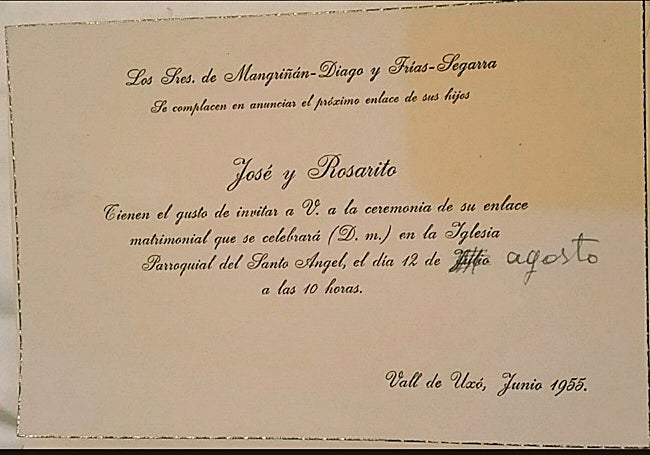 Los Sres. de Mangriñán-Diago y Frías-Segarra
Se complacen en anunciar el próximo enlace de sus hijos
José y Rosarito
Tienen el gusto de invitar a V. a la ceremonia de su enlace
matrimonial que se celebrará (D. m.) en la Iglesia
Parroquial del Santo Angel, el día 12 de Julio agosto
a las 10 horas.
Vall de Uxó, Junio 1955.